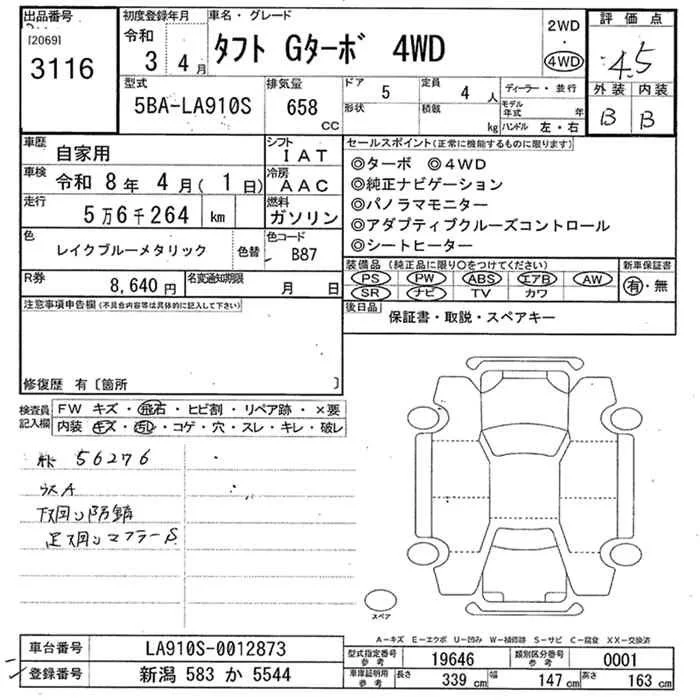 出品番号
[2069]
3116
初度登録年月
令和
3 4月
車名・グレード
タフト Gターボ 4WD
2WD
・
4WD
評価点
4.5
外装 内装
B B
型式
5BA-LA910S
排気量
658
cc
ドア
5
定員
4 人
形状
積載
kg
ディーラー・並行
モデル年式 年
ハンドル 左・右
車歴
自家用
シフト
IAT
車検
令和 8年 4月( 1日)
冷房
AAC
走行
5万6千264 km
燃料
ガソリン
色
レイクブルーメタリック
色替
色コード
B87
R券
8,640円
名変通知期限
月 日
セールスポイント(正常に機能するものに限ります)
◎ターボ ◎4WD
◎純正ナビゲーション
◎パノラマモニター
◎アダプティブクルーズコントロール
◎シートヒーター
装備品(純正品に限り○をつけてください)
PS PW ABS エアB AW
SR ナビ TV カワ
新車保証書
有・無
後日品
保証書・取説・スペアキー
注意事項申告欄(不具合内容等は具体的に記入して下さい)
修復歴 有〔箇所 〕
検査員記入欄
FW キズ・飛石・ヒビ割・リペア跡・×要
内装 キズ・汚レ・コゲ・穴・スレ・キレ・破レ
56276
下回り防錆
足廻りマフラーS
スペア
A－キズ E－エクボ U－凹み W－補修跡 S－サビ C－腐食 XX－交換済
車台番号
LA910S-0012873
登録番号
新潟 583 か 5544
型式指定番号
参考
19646
類別区分番号
参考
0001
車庫証明用
参考
長さ 339 cm
幅 147 cm
高さ 163 cm